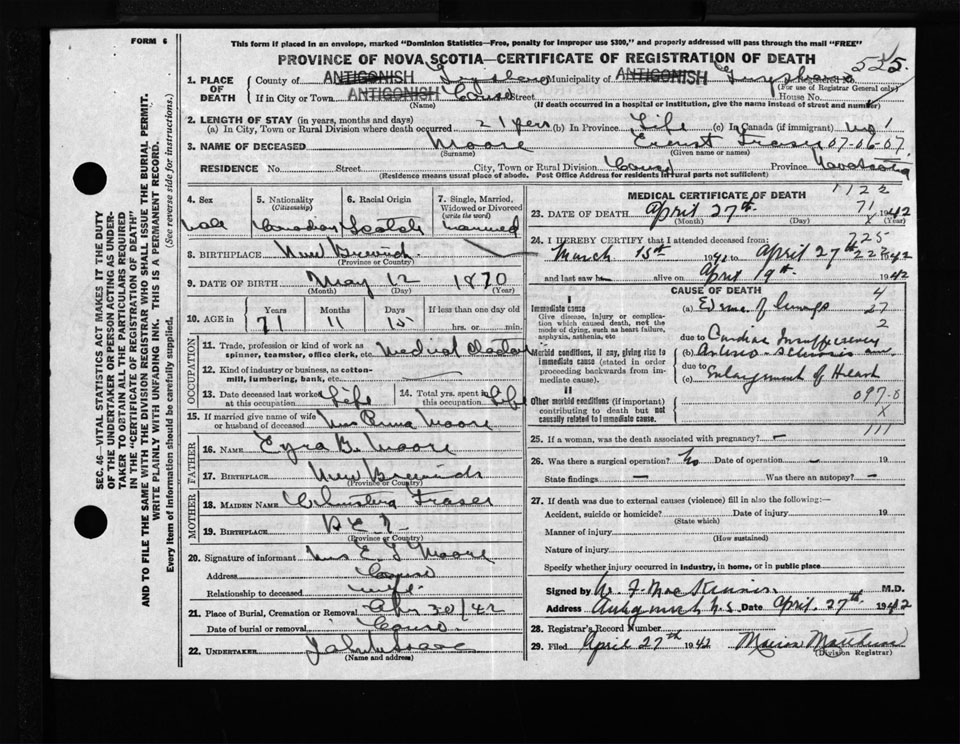 FORM 6
This form if placed in an envelope, marked "Dominion Statistics—Free, penalty for improper use $300," and properly addressed will pass through the mail "FREE"
PROVINCE OF NOVA SCOTIA—CERTIFICATE OF REGISTRATION OF DEATH
525
1. PLACE OF DEATH
County of ANTIGONISH Municipality of ANTIGONISH Registered No.
(For use of Registrar General only)
If in City or Town ANTIGONISH Canso Street House No.
(Name) (If death occurred in a hospital or institution, give the name instead of street and number)
2. LENGTH OF STAY (in years, months and days)
(a) In City, Town or Rural Division where death occurred 21 yrs (b) In Province Life (c) In Canada (if immigrant)
3. NAME OF DECEASED Moore Ernest Fraser 07-06-07.
(Surname) (Given name or names)
RESIDENCE No. Street City, Town or Rural Division Canso Province Nova Scotia
(Residence means usual place of abode. Post Office Address for residents in rural parts not sufficient)
4. Sex
Male
5. Nationality
(Citizenship)
Canadian
6. Racial Origin
Scotch
7. Single, Married, Widowed or Divorced
(write the word)
married
8. BIRTHPLACE New Brunswick
(Province or Country)
9. DATE OF BIRTH May 12 1870
(Month) (Day) (Year)
10. AGE in Years Months Days If less than one day old
71 11 15 hrs. or min.
OCCUPATION
11. Trade, profession or kind of work as spinner, teamster, office clerk, etc. Medical doctor
12. Kind of industry or business, as cotton-mill, lumbering, bank, etc.
13. Date deceased last worked at this occupation Life
14. Total yrs. spent in this occupation Life
15. If married give name of wife or husband of deceased Mrs Moore
FATHER
16. Name Ezra B. Moore
17. Birthplace New Brunswick
(Province or Country)
MOTHER
18. Maiden Name Fraser
19. Birthplace P.E.I.
(Province or Country)
20. Signature of informant Mrs E F Moore
Address Canso
Relationship to deceased wife
21. Place of Burial, Cremation or Removal Apr 30/42
Date of burial or removal Canso
22. UNDERTAKER
(Name and address)
MEDICAL CERTIFICATE OF DEATH
1122
71
X
23. DATE OF DEATH April 27th 1942
(Month) (Day) (Year)
24. I HEREBY CERTIFY that I attended deceased from:
225
March 15th 1942 to April 27th 1942
and last saw h alive on April 19th 1942
CAUSE OF DEATH
Immediate cause
Give disease, injury or complication which caused death, not the mode of dying, such as heart failure, asphyxia, asthenia, etc
(a) Edema of lungs
4
27
2
due to Cardiac Insufficiency
Morbid conditions, if any, giving rise to immediate cause (stated in order proceeding backwards from immediate cause).
(b) Arterio-sclerosis and
due to
(c) Enlargement of Heart
Other morbid conditions (if important) contributing to death but not causally related to immediate cause.
097-0
X
111
25. If a woman, was the death associated with pregnancy? —
26. Was there a surgical operation? No Date of operation — 19
State findings — Was there an autopsy? —
27. If death was due to external causes (violence) fill in also the following:—
Accident, suicide or homicide? Date of injury 19
(State which)
Manner of injury
(How sustained)
Nature of injury
Specify whether injury occurred in industry, in home, or in public place
Signed by W. F. MacKinnon M.D.
Address Antigonish N.S. Date April 27th 1942
28. Registrar's Record Number
29. Filed April 27th 1942 Marion Matthews
(Division Registrar)
SEC. 46—VITAL STATISTICS ACT MAKES IT THE DUTY OF THE UNDERTAKER OR PERSON ACTING AS UNDERTAKER TO OBTAIN ALL THE PARTICULARS REQUIRED IN THE "CERTIFICATE OF REGISTRATION OF DEATH" AND TO FILE THE SAME WITH THE DIVISION REGISTRAR WHO SHALL ISSUE THE BURIAL PERMIT.
WRITE PLAINLY WITH UNFADING INK. THIS IS A PERMANENT RECORD.
Every item of information should be carefully supplied. (See reverse side for instructions.)